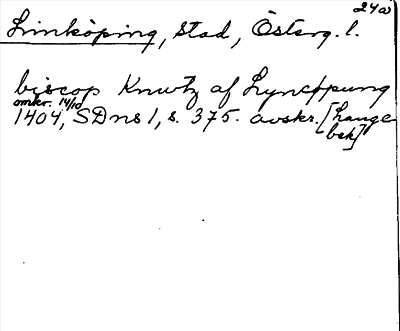 24a)
Linköping, stad, Österg. l.
biscop Knwtz af Lyncøpung
omkr. 14/10
1404, SDns 1, s. 375. avskr. [Lange
bek]